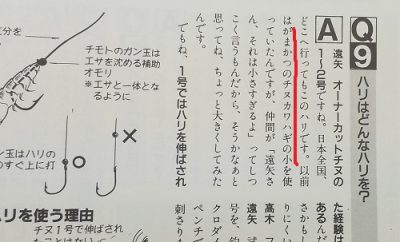 Q9
ハリはどんなハリを?
A
遠矢 オーナーカットチヌの
1〜2号ですね。日本全国、
どこへ行ってもこのハリです。以前
はがまかつのチヌカワハギの小を使
っていたんですが、仲間が「遠矢さ
ん、それは小さすぎるよ」ってしつ
こく言うもんだから、そうかなあと
思ってね、ちょっと大きくしてみた
んです。
でもね、1号ではハリを伸ばされ
た経験は
あるんだ
さかもし
りにくい
高木 フ
遠矢
号を、釣
クロダイ
ペンチで
刺さり
分を
チモトのガン玉は
エサを沈める補助
オモリ
※エサと一体とな
るように
×
○
ン玉はハリの
のすぐ上に打
リを使う理由
チヌ1号で伸ばされ